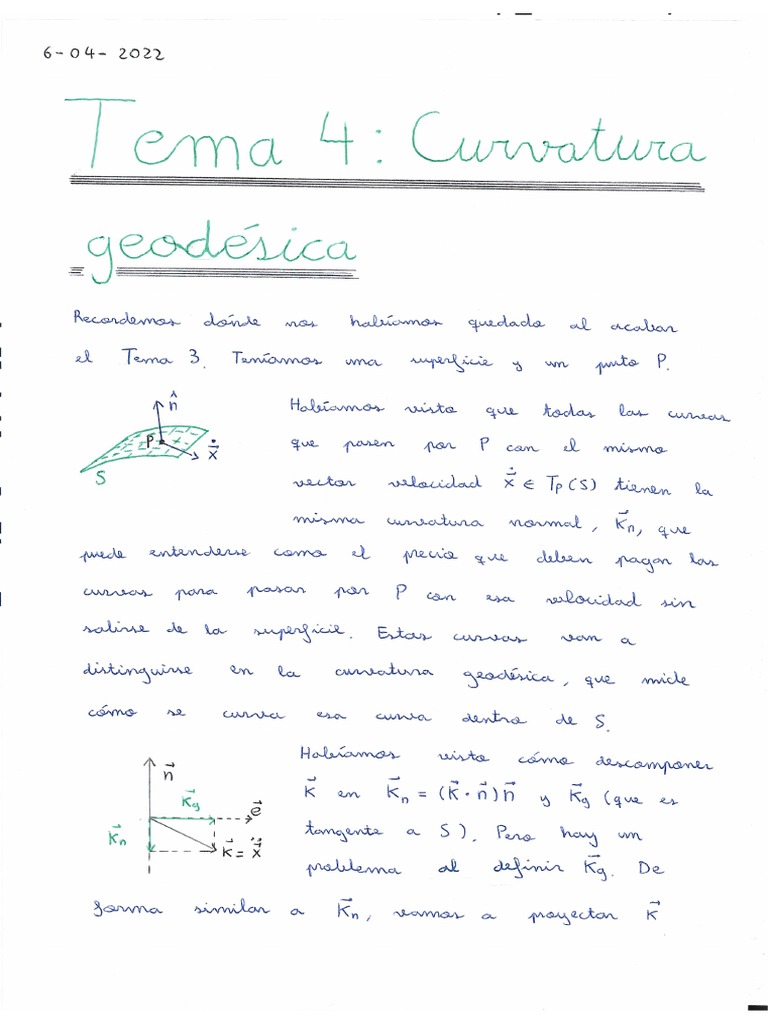 6-04-2022
Tema 4: Curvatura
geodésica
Recordemos dónde nos habíamos quedado al acabar
el Tema 3. Teníamos una superficie y un punto P.
n̂
P
ẋ⃗
S
Habíamos visto que todas las curvas
que pasen por P con el mismo
vector velocidad ẋ⃗ ∈ Tp(S) tienen la
misma curvatura normal, k⃗n, que
puede entenderse como el precio que deben pagar las
curvas para pasar por P con esa velocidad sin
salirse de la superficie. Estas curvas van a
distinguirse en la curvatura geodésica, que mide
cómo se curva esa curva dentro de S.
n⃗
k⃗g
e⃗
k⃗n
k⃗ = ẍ⃗
Habíamos visto cómo descomponer
k⃗ en k⃗n = (k⃗·n⃗)n⃗ y k⃗g (que es
tangente a S). Pero hay un
problema al definir k⃗g. De
forma similar a k⃗n, vamos a proyectar k⃗